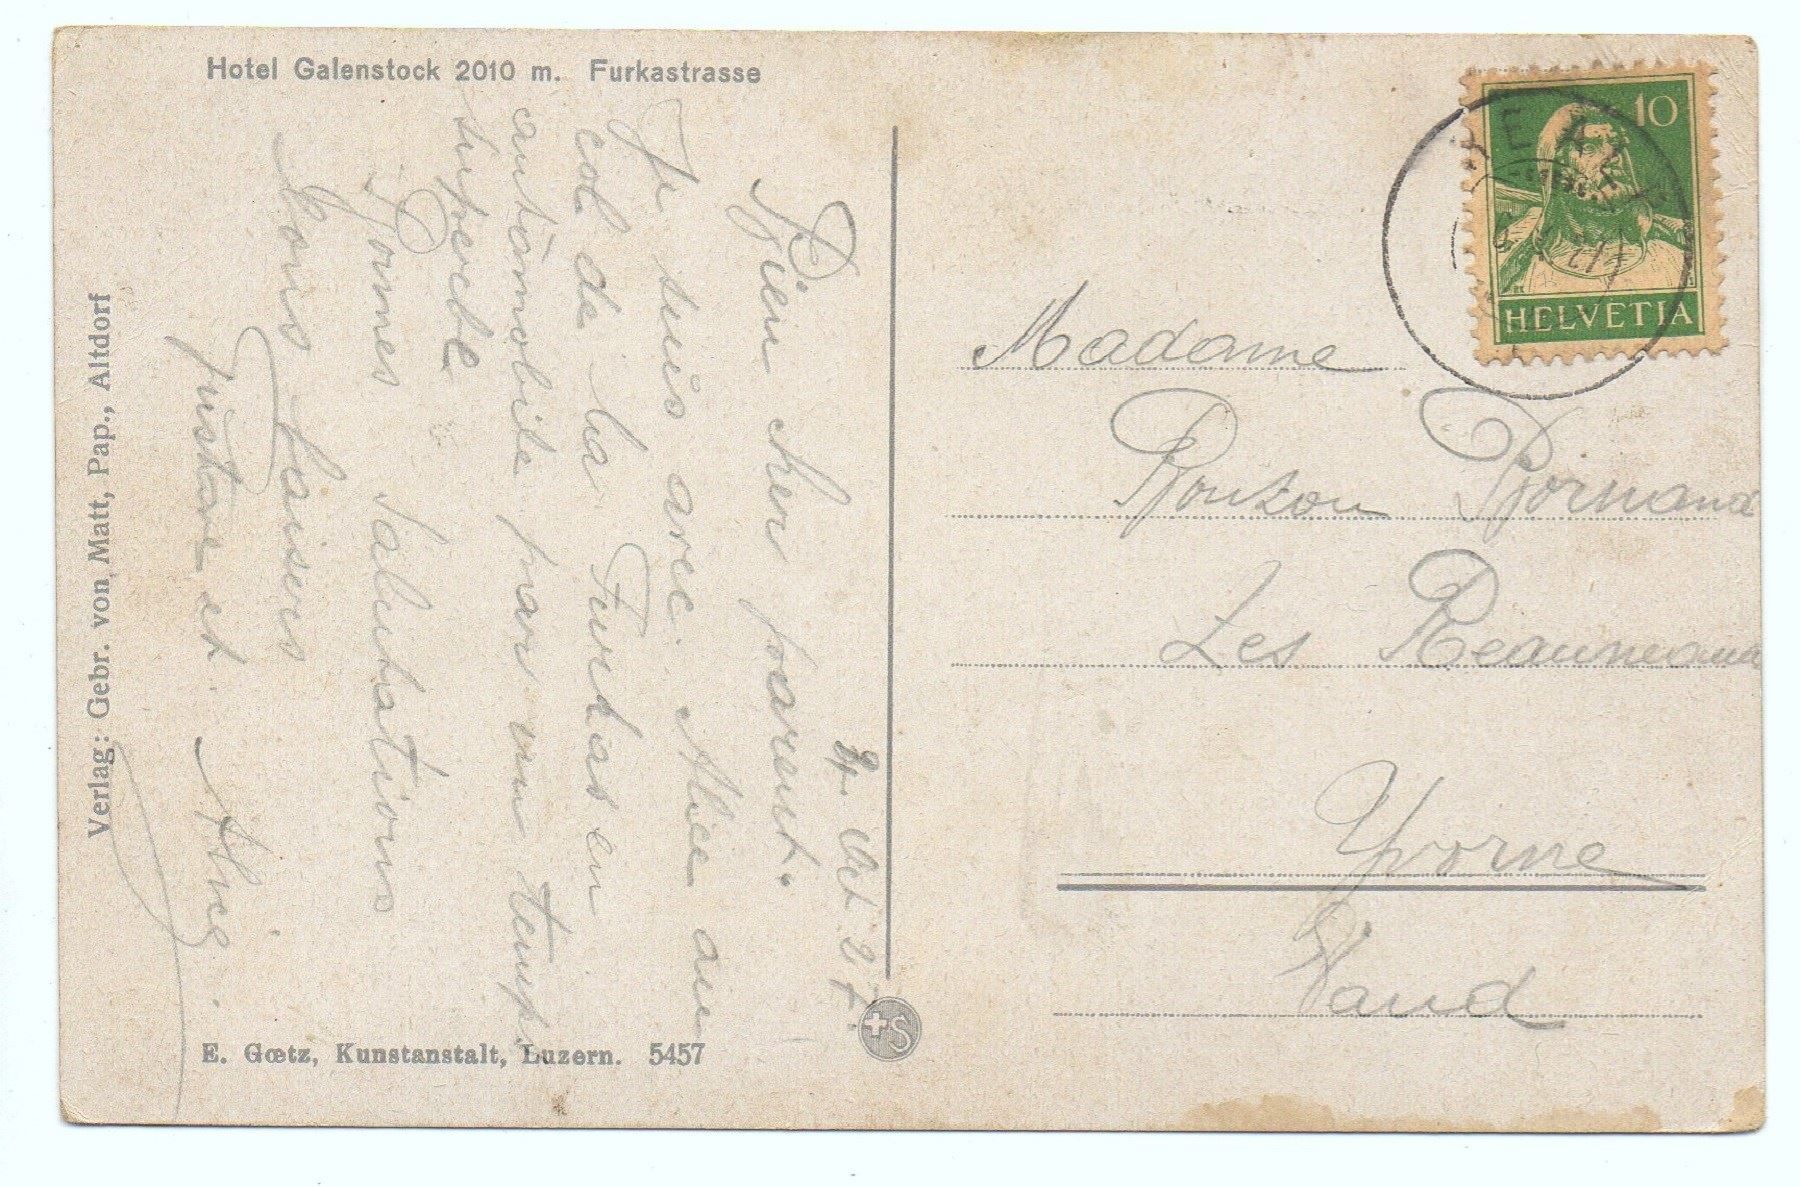 Hotel Galenstock 2010 m. Furkastrasse
10
HELVETIA
2 Oct 27.
Bien cher parent.
Je suis avec Alice au
col de la Furkas en
automobile par un temps
superbe
Bonnes Salutations
Bons baisers
Gustave et Alice.
Madame
Bonzon
Les
Yvorne
Vaud
Verlag: Gebr. von Matt, Pap., Altdorf
E. Gœtz, Kunstanstalt, Luzern. 5457
S